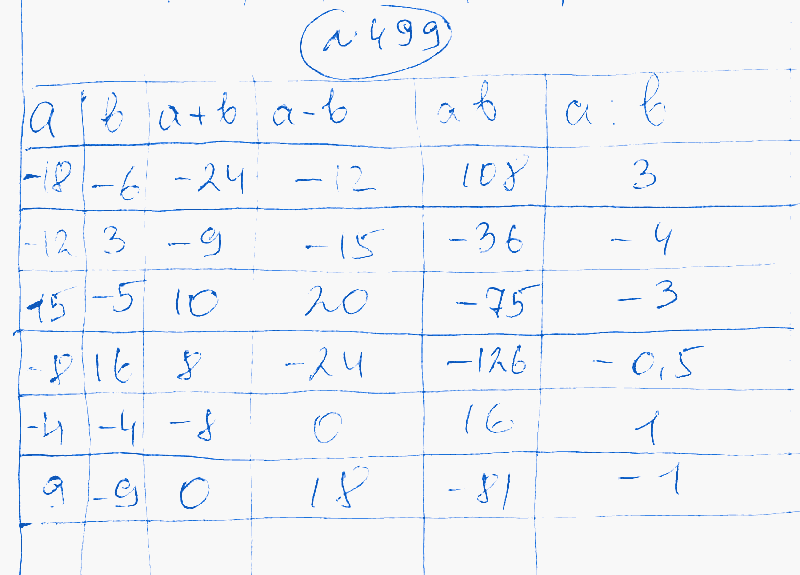 №499
a b a+b a-b ab a : b
-18 -6 -24 -12 108 3
-12 3 -9 -15 -36 -4
15 -5 10 20 -75 -3
-8 16 8 -24 -126 -0,5
-4 -4 -8 0 16 1
9 -9 0 18 -81 -1